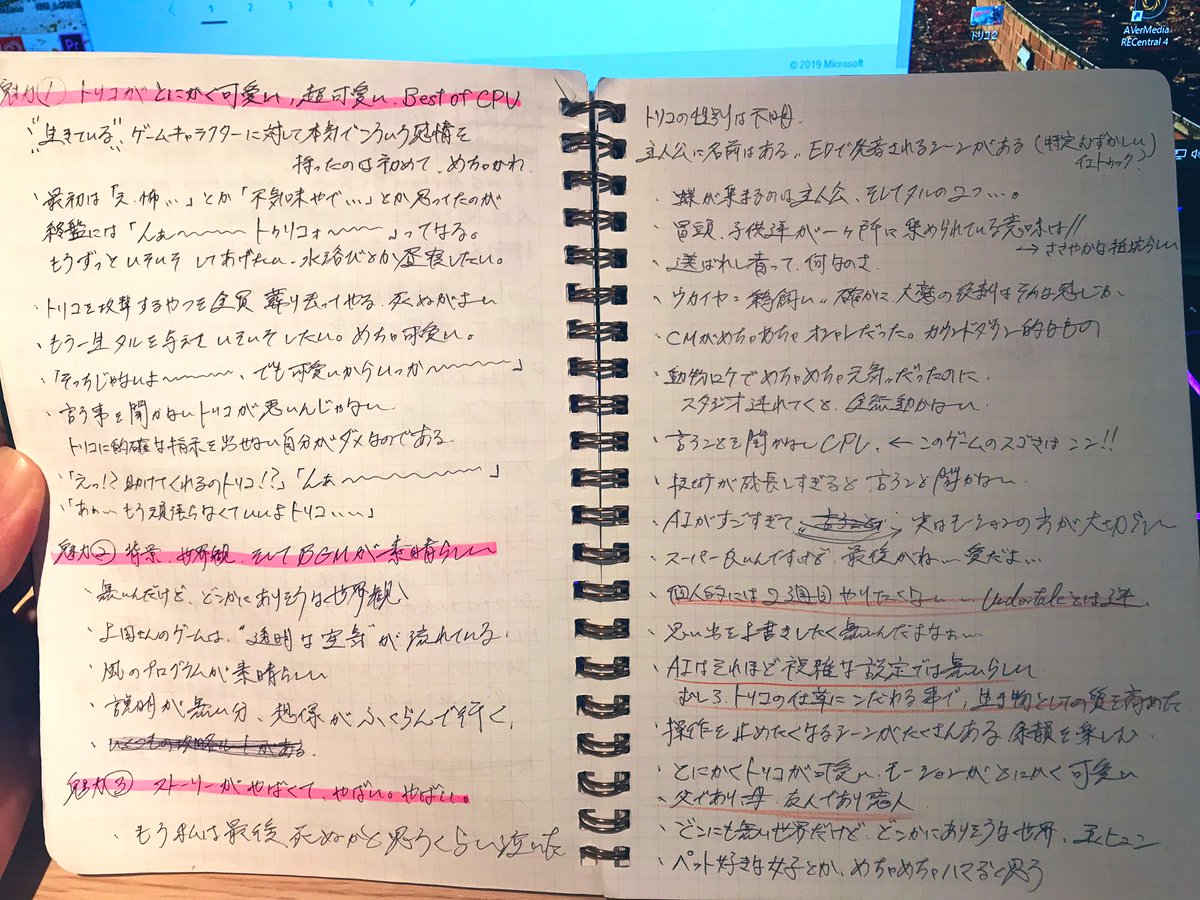 1 2
© 2019 Microsoft
Pr
トリコ2
AVerMedia
RECentral 4
魅力① トリコがとにかく可愛い、超可愛い、Best of CPU
"生きている" ゲームキャラクターに対して本気でこういう感情を
持ったのは初めて、めちゃかわ
・最初は「え、怖…」とか「不気味やで…」とか思ってたのが
終盤には「んぁ〜〜〜〜 トゥリコォ〜〜〜〜」ってなる。
もうずっといそいそしてあげたい、水浴びとか昼寝したい。
・トリコを攻撃するやつを全員蹴り去ってやる、死ぬがよい
・もう一生タルを与えていそいそしたい。めちゃ可愛い。
・「そっちじゃないよ〜〜〜〜、でも可愛いからいっか〜〜〜〜」
・言う事を聞かないトリコが悪いんじゃない
トリコに的確な指示を出せない自分がダメなのである
・「えっ!?助けてくれるのトリコ!?」「んぁ〜〜〜〜〜〜」
・「あぁ…もう頑張らなくていいよトリコ…」
魅力② 背景、世界観、そしてBGMが素晴らしい
・無いんだけど、どこかにありそうな世界観
・上田さんのゲームは、"透明な空気"が流れている
・風のプログラムが素晴らしい
・説明が無い分、想像がふくらんで行く
・いくつもの攻略ルートがある
魅力③ ストーリーがやばくて、やばい。やばい。
・もう私は最後、死ぬかと思うくらい泣いた
トリコの性別は不明
主人公に名前はある。EDで発音されるシーンがある(特定むずかしい)
・蝶が集まるのは主人公、そしてタルの2つ…。
・冒頭、子供達が一ヶ所に集められている意味は!!
→ ささやかな抵抗らしい
・選ばれし者って、何なのさ
・ウカイヤ=鵜飼い。確かに、大鷲の役割はそんな感じか
・CMがめちゃめちゃオシャレだった。カウントダウン的なもの
・動物ロケでめちゃめちゃ元気だったのに、
スタジオ連れてくと、全然動かない
・言うことを聞かないCPU、← このゲームのスゴさはココ!!
・技術が成長しすぎると言うこと聞かない
・AIがすごすぎて 実はモーションの方が大切らしい
・スーパー良いんですけど、最後がね…愛だよ…
・個人的には2週目やりたくない… Undertaleとは逆
・思い出を上書きしたく無いんだよなぁ…
・AIはそれほど複雑な設定では無いらしい
むしろ、トリコの仕草にこだわる事で、生き物としての質を高めた
・操作を止めたくなるシーンがたくさんある 余韻を楽しむ
・とにかくトリコが可愛い、モーションがとにかく可愛い
・父であり母、友人であり恋人
・どこにも無い世界だけど、どこかにありそうな世界、
・ペット好きな女子とか、めちゃめちゃハマると思う